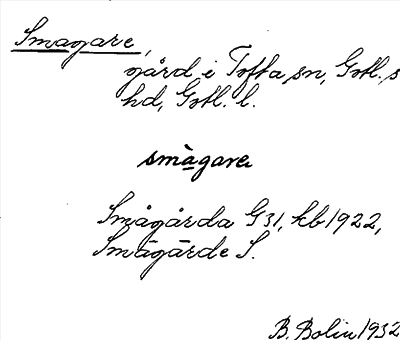 Smagare,
gård i Tofta sn, Gotl. s
hd, Gotl. l.
smàgarɐ
Smågårda G31, kb 1922,
Smägärde S.
B. Bolin 1932